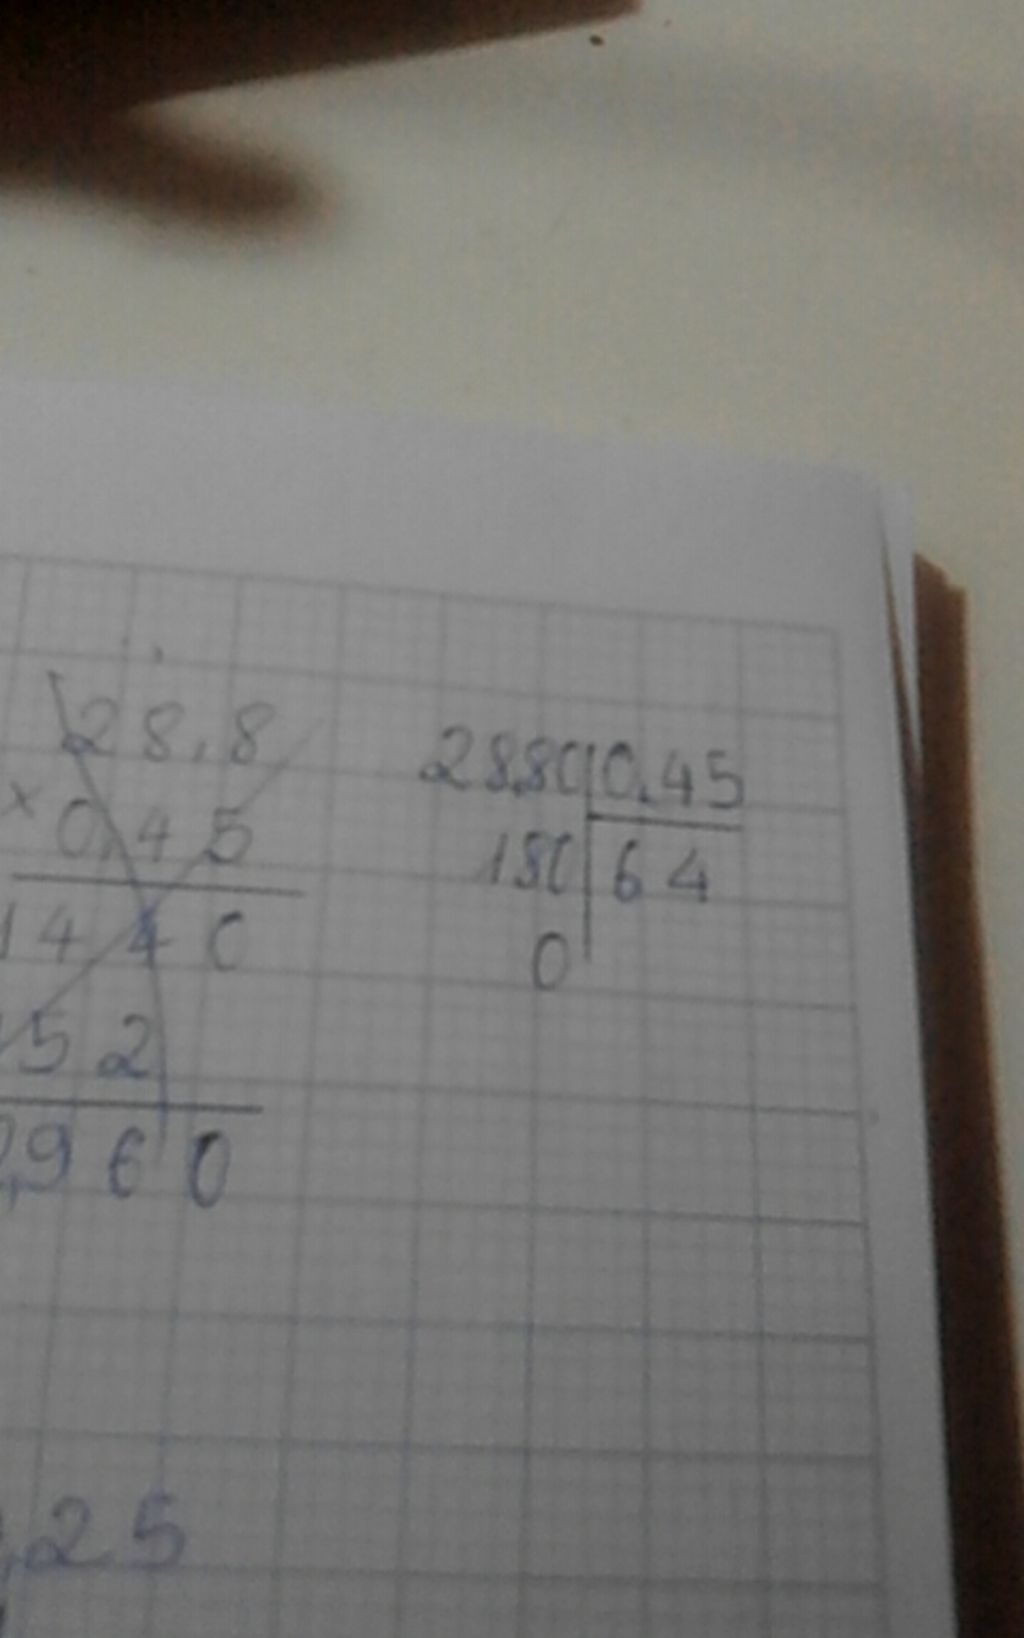 28,8
× 0,45
1440
152
2,960
28,80 0,45
180 64
0
,25